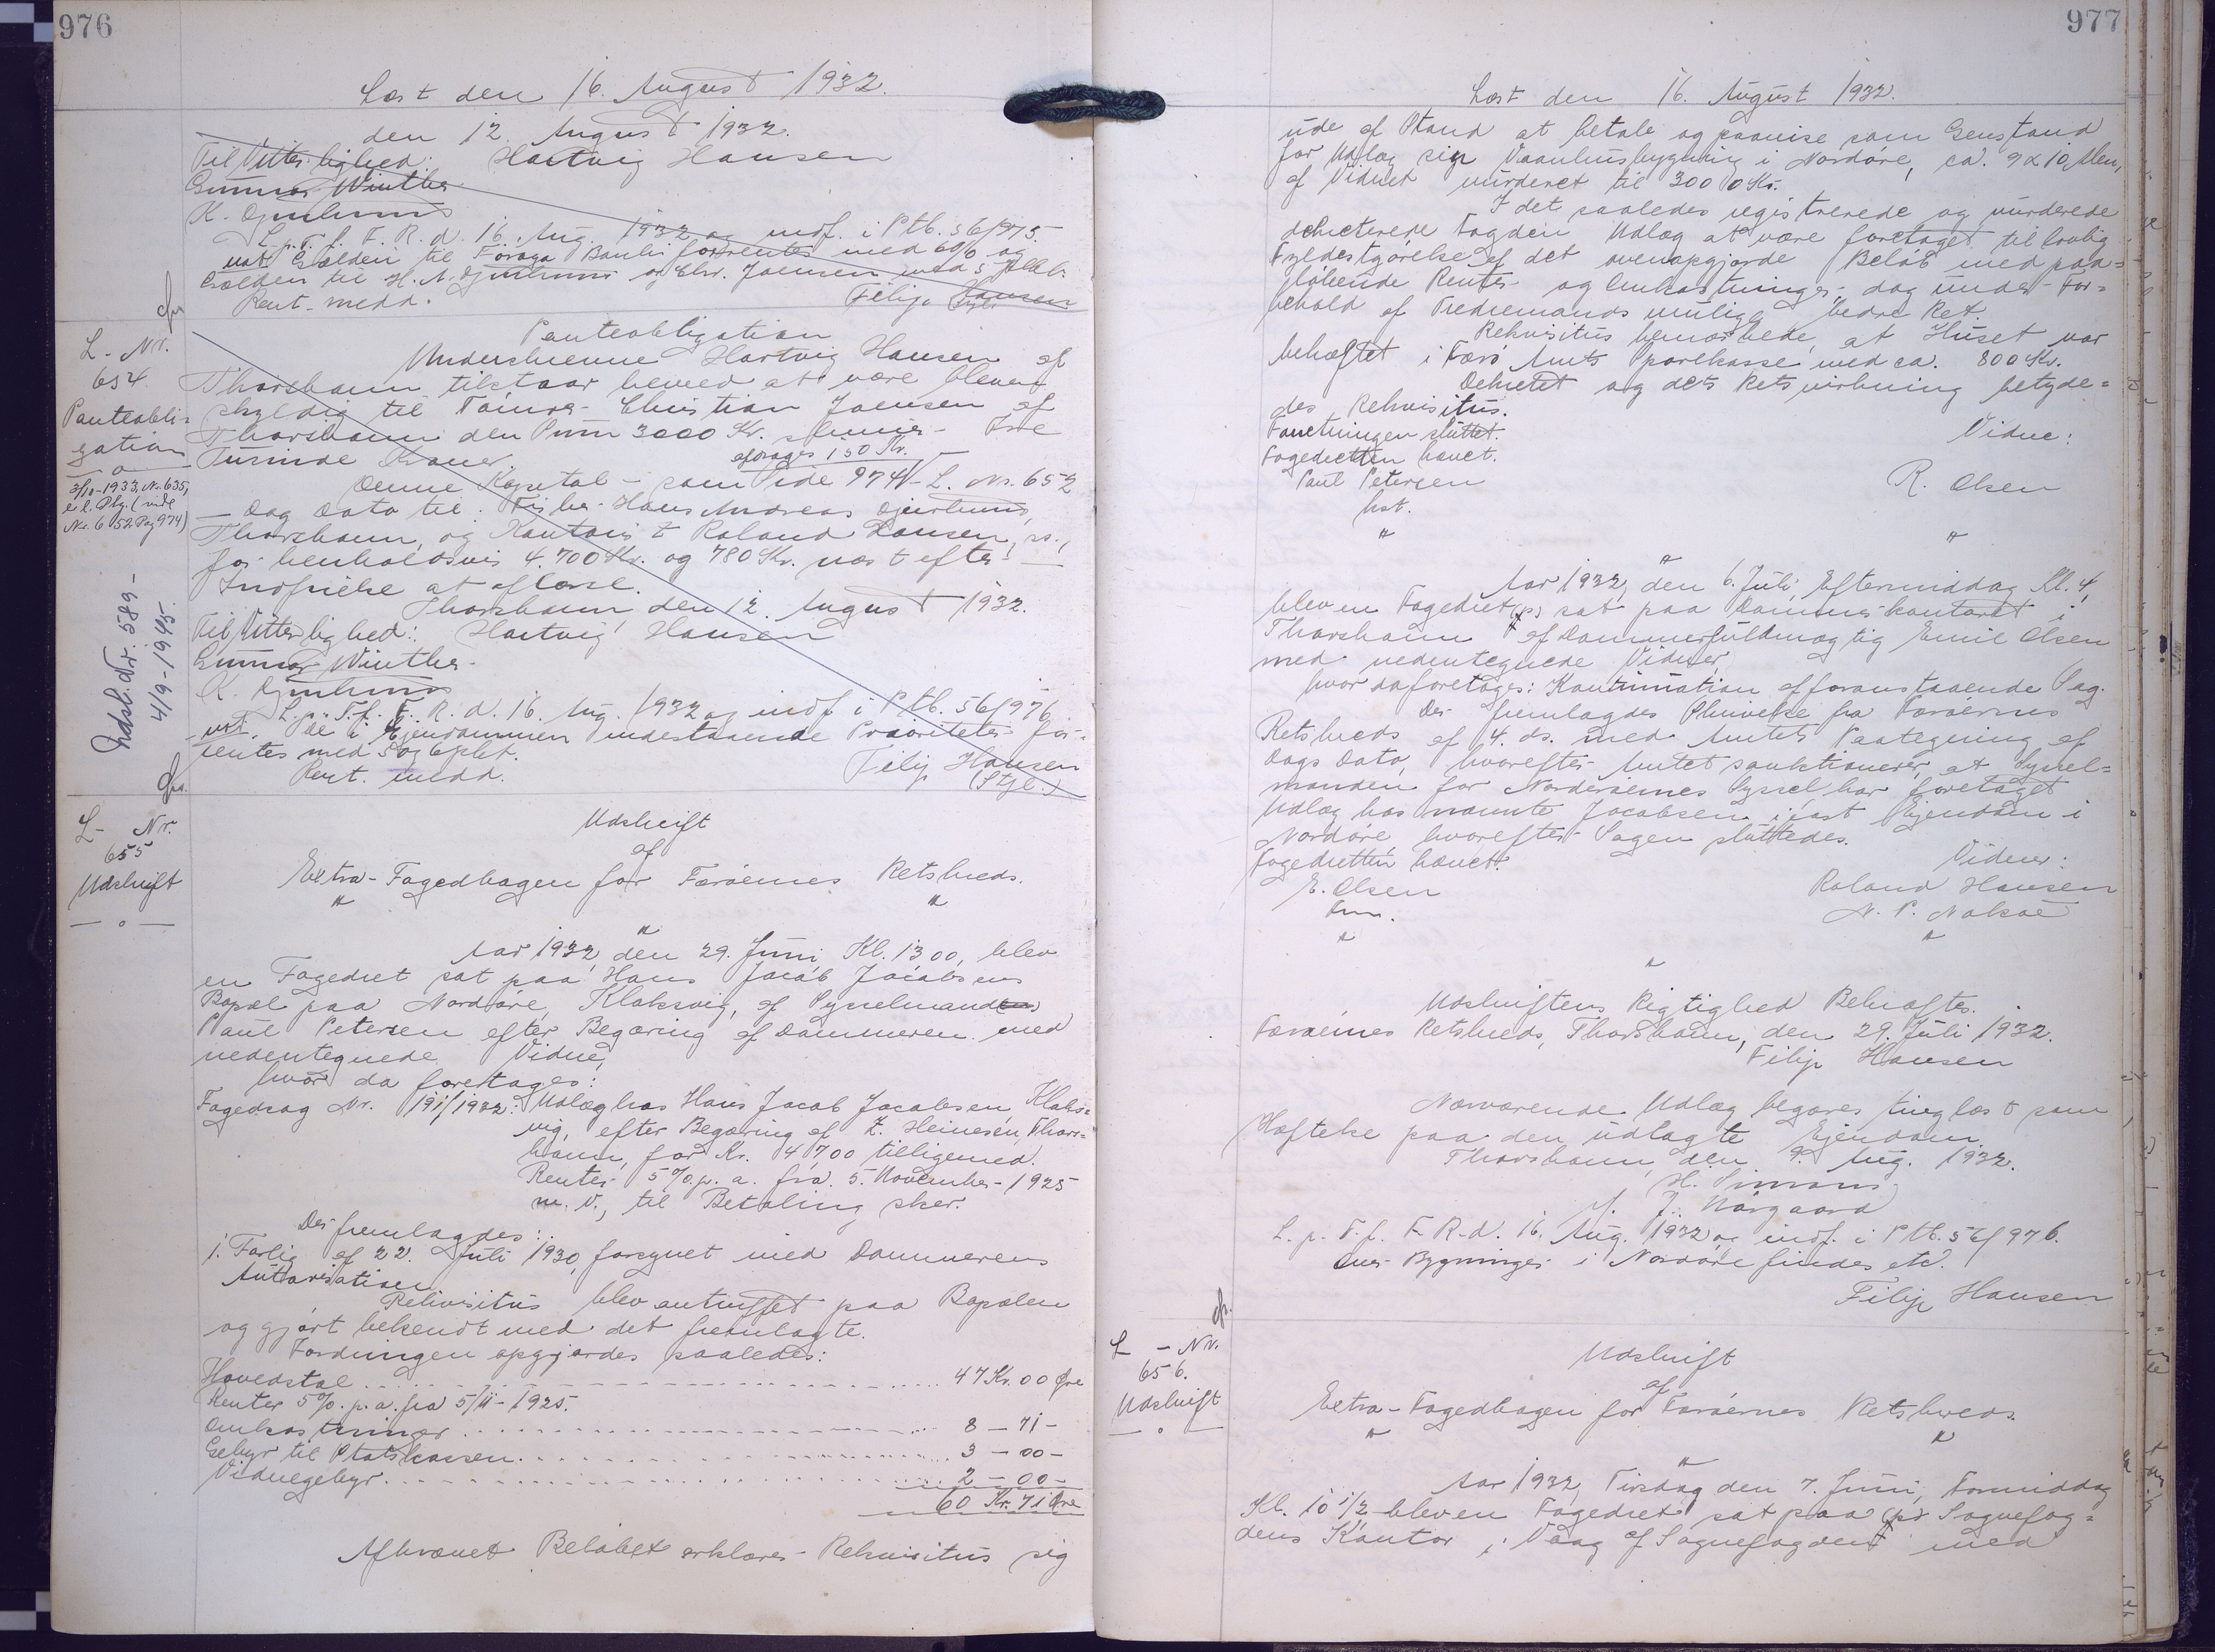 976
Læst den 16. August 1932.
den 12. August 1932.
Til Vitterlighed: Hartvig Hansen
Gunnar Winther
K. Djurhuus
L. p. T. f. F. R. d. 16. Aug. 1932 og indf. i Ptb. 56/975.
not. Gælden til Föroya Banki forrentes med 6% og
Gælden til H. A. Djurhuus og Chr. Joensen med 5
Rent. medd. Filip Hansen
L-Nr.
654
Panteobli-
gation
3/10-1933, Nr. 635,
e.l. Ptg. (vide
Nr. 652 Pag 974)
Udsl. Nr. 589-
4/9-1945.
Panteobligation
Underskrevne Hartvig Hansen af
Thorshavn tilstaar herved at være bleven
skyldig til Tömrer Christian Joensen af
Thorshavn den Sum 3000 Kr. skriver Tre
Tusinde Kroner.
afdrages 150 Kr.
Denne Kapital - som Side 974 - L. Nr. 652
- Dag Dato til: Fisker Hans Andreas Djurhuus,
Thorshavn, og Kontorist Roland Hansen, ss.,
for henholdsvis 4.700 Kr. og 780 Kr. næst efter -
Indfrielse at aflæse.
Thorshavn, den 12. August 1932.
Til Vitterlighed: Hartvig Hansen
Gunnar Winther.
K. Djurhuus
L. p. T. f. F. R. d. 16. Aug. 1932 og indf. i Ptb. 56/976
not. De i Ejendommen indestaaende Prioriteter for-
rentes med 5 og 6 pCt.
Rent. medd. Filip Hansen
(Stpl.)
L- Nr.
655
Udskrift
Udskrift
af
Extra-Fogedbogen for Færöernes Retskreds.
Aar 1932, den 29. Juni Kl. 1300, blev
en Fogedret sat paa Hans Jacob Jacobsens
Bopæl paa Nordöre, Klaksvig, af Sysselmand
Paul Petersen efter Begæring af Dommeren med
nedentegnede Vidne,
hvor da foretages:
Fogedsag Nr. 191/1932: Udlæg hos Hans Jacob Jacobsen, Klaks-
vig, efter Begæring af Z. Heinesen, Thors-
havn, for Kr. 4700 tilligemed
Renter 5% p. a. fra 5. November 1925
m. v., til Betaling sker.
Der fremlagdes:
1. Forlig af 22. Juli 1930, forsynet med Dommerens
Auttorisation
Rekvisitus blev antruffet paa Bopælen
og gjort bekendt med det fremlagte.
Fordringen opgjordes saaledes:
Hovedstol 47 Kr. 00 Øre
Renter 5% p. a. fra 5/11-1925.
Omkostninger 8 - 71 -
Gebyr til Statskassen 3 - 00 -
Vidnegebyr 2 - 00 -
60 Kr. 71 Øre
Afkrævet Belöbet erklærer Rekvisitus sig
977
Læst den 16. August 1932.
ude af Stand at betale og paavise som Genstand
for Udlæg sin Vaanhusbygning i Nordöre, ca. 9 x 10 Alen,
af Vidnet vurderet til 3000 Kr.
I det saaledes registrerede og vurderede
dekreterede Fogden Udlæg at være foretaget til lovlig
Fyldestgörelse af det ovenopgjorde Belöb med paa-
löbende Renter og Omkostninger, dog under For-
behold af Tredjemands mulige bedre Ret.
Rekvisitus bemærkede, at Huset var
behæftet i Færö Amts Sparekasse med ca. 800 Kr.
Dekretet og dets Retsvirkning betyde-
des Rekvisitus.
Forretningen sluttet.
Fogedretten hævet.
Paul Petersen
kst.
Vidne:
R. Olsen
Aar 1932, den 6. Juli, Eftermiddag Kl. 4,
blev en Fogedret (p) sat paa Dommerkontoret i
Thorshavn af Dommerfuldmægtig Emil Olsen
med nedentegnede Vidner,
hvor da foretages: Kontinuation af foranstaaende Sag.
Der fremlagdes Skrivelse fra Færöernes
Retskreds af 4. ds. med Amtets Paategning af
Dags Dato, hvorefter Amtet sanktionerer, at Syssel-
manden for Norderöernes Syssel, har foretaget
Udlæg hos nævnte Jacobsen i fast Ejendom i
Nordöre, hvorefter Sagen sluttedes.
Fogedretten hævet.
E. Olsen
Fm.
Vidner:
Roland Hansen
N. P. Nolsøe
Udskriftens Rigtighed Bekræftes.
Færöernes Retskreds, Thorshavn, den 29. Juli 1932.
Filip Hansen
Nærværende Udlæg begæres tinglæst som
Hæftelse paa den udlagte Ejendom.
Thorshavn, den 9. Aug. 1932.
H. Simons
J. Nörgaard
L. p. T. f. F. R. d. 16. Aug. 1932 og indf. i Ptb. 56/976.
Over Bygninger i Nordöre findes etc.
Filip Hansen
L - Nr.
656.
Udskrift
Udskrift
af
Extra-Fogedbogen for Færöernes Retskreds.
Aar 1932, Tirsdag den 7. Juni, Formiddag
Kl. 10 1/2 blev en Fogedret sat paa (p) Sognefog-
dens Kontor i Vaag af Sognefogden med